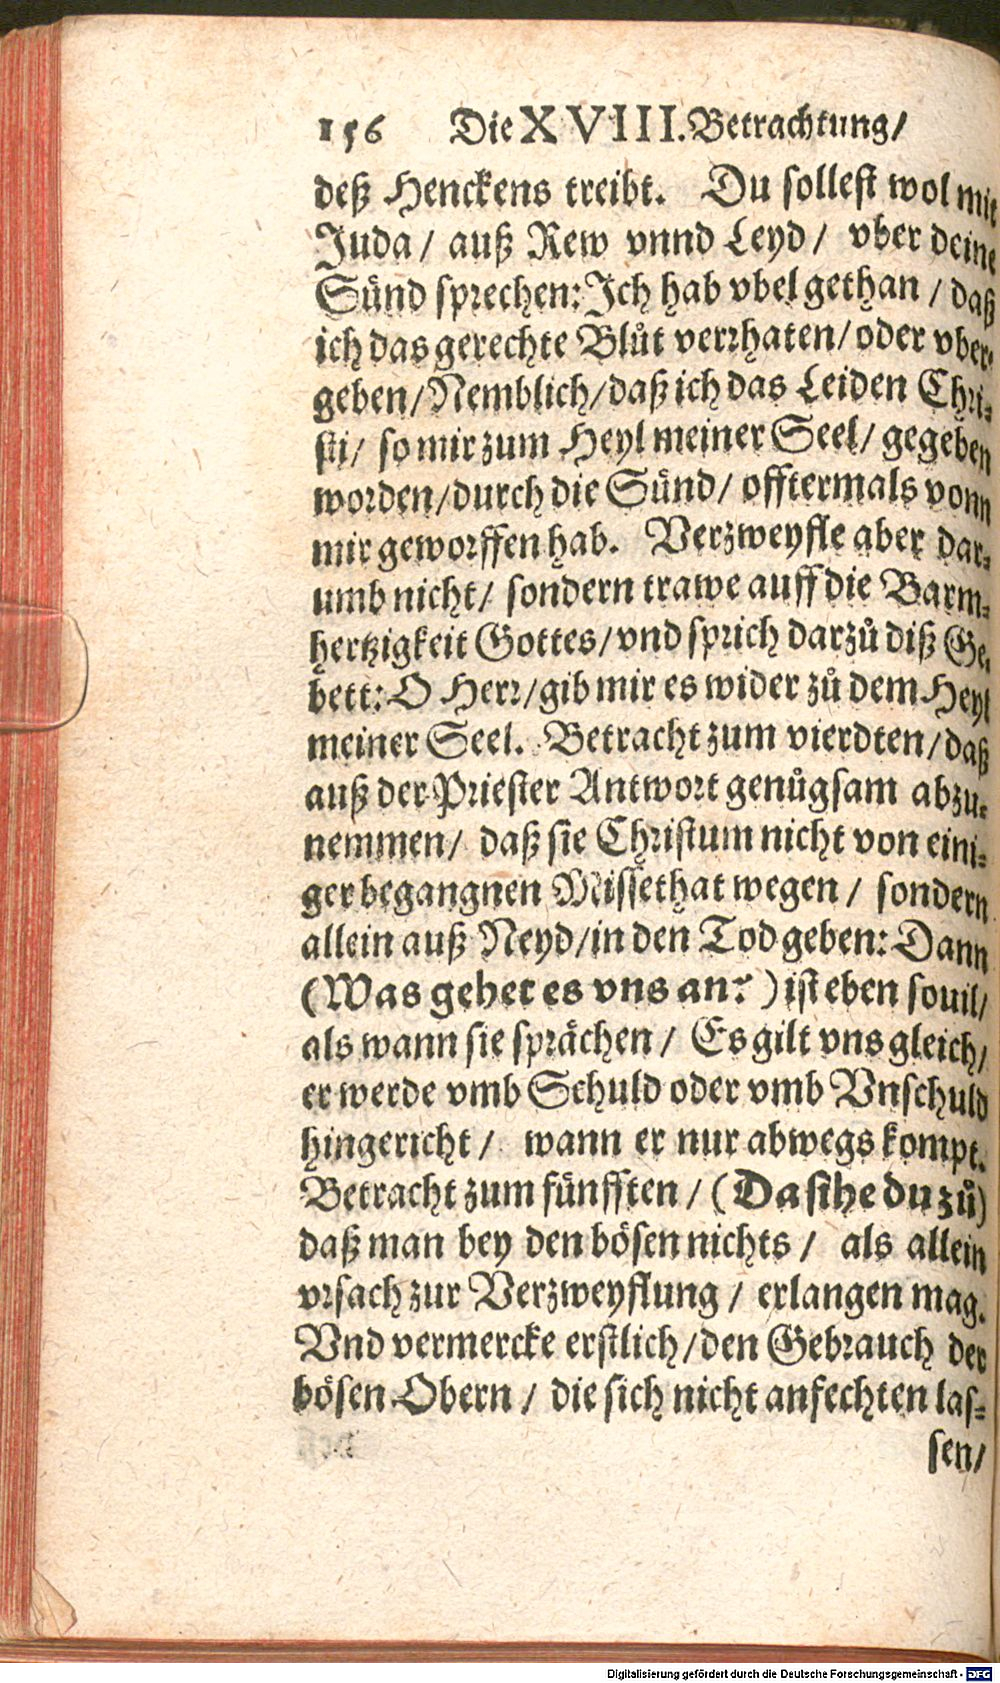 156 Die XVIII. Betrachtung/
deß Henckens treibt. Du sollest wol mit
Juda / auß Rew vnnd Leyd / vber deine
Sünd sprechen: Ich hab vbel gethan / daß
ich das gerechte Blůt verrhaten/ oder vber-
geben/ Nemblich/ daß ich das Leiden Chri-
sti/ so mir zum Heyl meiner Seel/ gegeben
worden/ durch die Sünd/ offtermals vonn
mir geworffen hab. Verzweyfle aber dar-
umb nicht/ sondern trawe auff die Barm-
hertzigkeit Gottes/ vnd sprich darzů diß Ge-
bett: O Herr/ gib mir es wider zů dem Heyl
meiner Seel. Betracht zum vierdten/ daß
auß der Priester Antwort genůgsam abzu-
nemmen/ daß sie Christum nicht von eini-
ger begangnen Missethat wegen / sondern
allein auß Neyd/ in den Tod geben: Dann
(Was gehet es vns an? ) ist eben souil/
als wann sie sprächen / Es gilt vns gleich/
er werde vmb Schuld oder vmb Vnschuld
hingericht / wann er nur abwegs kompt.
Betracht zum fünfften / (Da sihe du zů)
daß man bey den bösen nichts / als allein
vrsach zur Verzweyflung / erlangen mag.
Vnd vermercke erstlich/ den Gebrauch der
bösen Obern / die sich nicht anfechten las-
sen/
Digitalisierung gefördert durch die Deutsche Forschungsgemeinschaft - DFG